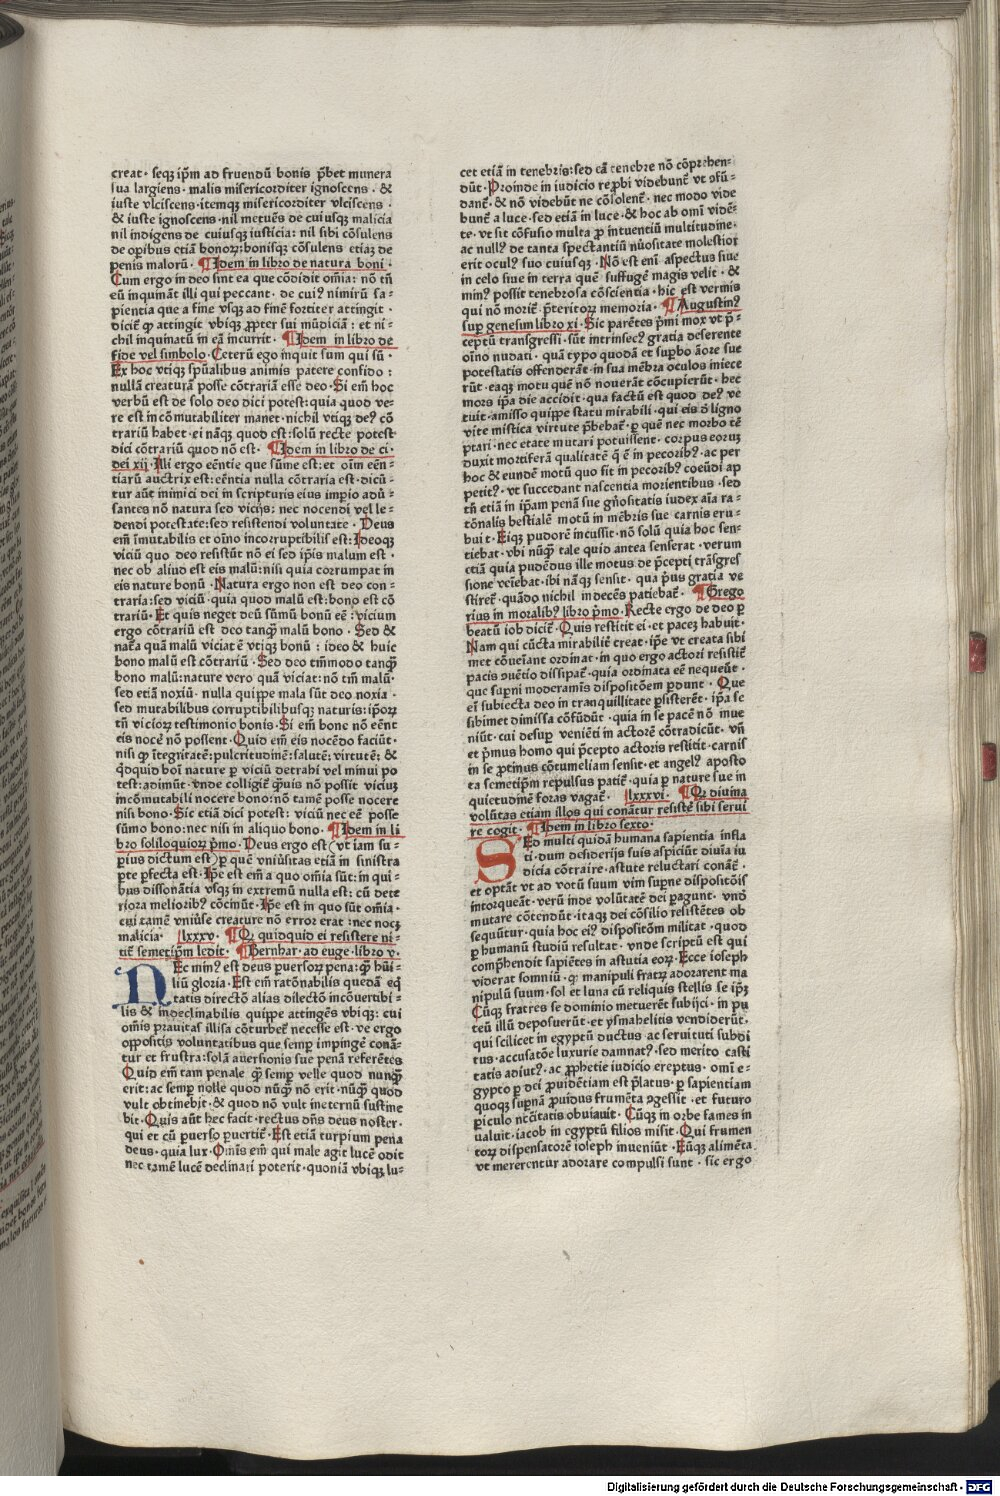 creat· seqꝫ ip̄m ad fruendū bonis p̄bet munera
sua largiens· malis misericorditer ignoscens· &
iuste vlciscens· itemqꝫ misericorditer vlciscens·
& iuste ignoscens· nil metuēs de cuiusqꝫ malicia
nil indigens de cuiusqꝫ iusticia: nil sibi cōsulens
de oꝑibus etiā bonoꝝ: bonisqꝫ cōsulens etiaꝫ de
penis maloꝝ· ¶ Idem in libro de natura boni·
Cum ergo in deo sint ea que cōdidit om̄ia: nō tn̄
eū inquināt illi qui peccant· de cuiꝰ nimirū sa⸗
pientia que a fine vsqꝫ ad finē fortiter attingit·
dicit̄ ꝙ attingit vbiqꝫ ꝓpter sui mūdiciā: et ni⸗
chil inquinatū in eā incurrit· ¶ Idem in libro de
fide vel simbolo· Ceterū ego inquit sum qui sū·
Ex hoc vtiqꝫ sp̄ualibus animis patere confido:
nullā creaturā posse cōtrariā esse deo· Si em̄ hoc
verbū est de solo deo dici potest: quia quod ve⸗
re est incōmutabiliter manet· nichil vtiqꝫ deꝰ cō
trariū habet· ei nāqꝫ quod est: solū recte potest
dici cōtrariū quod nō est· ¶ Idem in libro de ci⸗
dei xij· Illi ergo eēntie que sūme est: et oīm eēn⸗
tiarū auctrix est: eēntia nulla cōtraria est· dicū⸗
tur aūt inimici dei in scripturis eius impio adū⸗
santes nō natura sed vicijs: nec nocendi vel le⸗
dendi potestate: sed resistendi voluntate· Deus
em̄ īmutabilis et oīno incorruptibilis est: Ideoqꝫ
viciū quo deo resistūt nō ei sed ip̄is malum est·
nec ob aliud est eis malū: nisi quia corrumpat in
eis nature bonū· Natura ergo non est deo con⸗
traria: sed viciū· quia quod malū est: bono est cō
trariū· Et quis neget deū sūmū bonū eē: vicium
ergo cōtrariū est deo tanqͣꝫ malū bono· Sed &
naͣa quā malū viciat ē vtiqꝫ bonū: ideo & huic
bono malū est cōtrariū· Sed deo tm̄modo tanqꝫ̄
bono malū: nature vero quā viciat: nō tm̄ malū·
sed etiā noxiū· nulla quippe mala sūt deo noxia·
sed mutabilibus corruptibilibusqꝫ naturis: ip̄oꝝ
tn̄ vicioꝝ testimonio bonis· Si em̄ bone nō eēnt
eis nocē nō possent· Quid em̄ eis nocēdo faciūt·
nisi ꝙ ītegritatē: pulcritudinē: salutē: virtutē: &
q̇dquid boī nature ꝑ viciū detrahi vel minui po
test: adimūt· vnde colligit̄ qͣuis nō possit viciuꝫ
incōmutabili nocere bono: nō tamē posse nocere
nisi bono· Sic etiā dici potest: viciū nec eē posse
sūmo bono: nec nisi in aliquo bono· ¶ Idem in li
bro soliloquioꝝ p̄mo· Deus ergo est (vt iam su⸗
ꝑius dictum est) ꝑ quē vniūsitas etiā in sinistra
ꝑte ꝑfecta est· Ip̄e est em̄ a quo om̄ia sūt: in qui⸗
bus dissonātia vsqꝫ in extremū nulla est: cū dete
riora melioribꝰ cōcinūt· Ip̄e est in quo sūt om̄ia·
cui tamē vniūse creature nō error erat: nec nocꝫ
malicia· lxxxv· ¶ Qꝫ quidquid ei resistere ni⸗
tit̄ semetip̄m ledit· ¶ Bernhar· ad euge· libro v·
NEc minꝰ est deus ꝑuersoꝝ pena: qͣꝫ hūi⸗
liū gloria· Est em̄ ratōnabilis quedā eq̄
tatis directō alias dilectō incōuertibi⸗
lis & indeclinabilis quippe attingēs vbiqꝫ: cui
om̄is prauitas illisa cōturbet̄ necesse est· ve ergo
oppositis voluntatibus que semꝑ impingē conā⸗
tur et frustra: solā auersionis sue penā referētes
Quid em̄ tam penale qͣꝫ semꝑ velle quod nunqͣꝫ
erit: ac semꝑ nolle quod nūqͣꝫ nō erit· nūqͣꝫ quod
vult obtinebit· & quod nō vult ineternū sustine
bit· Quis aūt hec facit· rectus dn̄s deus noster·
qui et cū ꝑuerso ꝑuertit̄· Est etiā turpium pena
deus· quia lux· Om̄is em̄ qui male agit lucē odit
nec tamē lucē declinari poterit· quoniā vbiqꝫ lu⸗
cet etiā in tenebris: sed eā tenebre nō cōprehen⸗
dūt· Proinde in iudicio reꝓbi videbunt̄ vt ꝯfū⸗
dant̄· & nō videbūt ne cōsolent̄· nec modo vide
bunt̄ a luce· sed etiā in luce· & hoc ab om̄i vidē⸗
te· vt sit cōfusio multa ꝓ intuentiū multitudine·
ac nullꝰ de tanta spectantiū nūositate molestior
erit oculꝰ suo cuiusqꝫ· Nō est em̄ aspectus siue
in celo siue in terra quē suffugē magis velit· &
minꝰ possit tenebrosa cōscientia· hic est vermis
qui nō morit̄· p̄teritoꝝ memoria· ¶ Augustinꝰ
suꝑ genesim libro xi· Sic parētes p̄mi mox vt p̄⸗
ceptū transgressi· sūt intrinsecꝰ gratia deserente
oīno nudati· quā typo quodā et suꝑbo āore sue
potestatis offenderāt· in sua mēbra oculos iniece
rūt· eaqꝫ motu quē nō nouerāt cōcupierūt· hec
mors ip̄a die accidit· qua factū est quod deꝰ ve
tuit· amisso quippe statu mirabili· qui eis ꝺ ligno
vite mistica virtute p̄bebat̄· ꝑ quē nec morbo tē
ptari· nec etate mutari potuissent· corpus eoruꝫ
duxit mortiferā qualitatē q̄ ē in pecoribꝰ· ac ꝑ
hoc & eundē motū quo fit in pecoribꝰ coeūdi ap
petitꝰ· vt succedant nascentia morientibus· sed
tn̄ etiā in ip̄am penā sue gn̄ositatis iudex aīa ra⸗
tōnalis bestialē motū in mēbris sue carnis eru⸗
buit· Eiqꝫ pudorē incussit· nō solū quia hoc sen⸗
tiebat· vbi nūqͣꝫ tale quid antea senserat· verum
etiā quia pudēdus ille motus de p̄cepti trāsgres
sione veīebat· ibi nāqꝫ sensit· qua p̄us gratia ve
stiret̄· quādo nichil indecēs patiebat̄· ¶ Grego
rius in moralibꝰ libro p̄mo· Recte ergo de deo ꝑ
beatū iob dicit̄· Quis restitit ei· et paceꝫ habuit·
Nam qui cūcta mirabilit̄ creat· ip̄e vt creata sibi
met cōueīant ordinat· in quo ergo actori resistit̄
pacis ꝯuētio dissipat̄· quia ordinata eē nequeūt·
que suꝑni moderamīs dispositōem ꝑdunt· Que
ei subiecta deo in tranquillitate ꝑsisterēt· ip̄a se
sibimet dimissa cōfūdūt· quia in se pacē nō inue
niūt· cui desuꝑ venieti in actorē cōtradicūt· vn̄
et p̄mus homo qui p̄cepto actoris restitit· carnis
in se ꝓtinus cōtumeliam sensit· et angelꝰ aposto
ta semetip̄m repulsus patit̄· quia ꝑ nature sue in
quietudinē foras vagat̄· lxxxvi· ¶ Qꝫ diuina
volūtas etiam illos qui conātur resistē sibi serui
re cogit· ¶ Idem in libro sexto·
SEd multi quidā humana sapientia infla
ti· dum desiderijs suis aspiciūt diuīa iu
dicia cōtraire· astute reluctari conāt̄·
et optāt vt ad votū suum vim suꝑne dispositōis
intorqueāt· verū inde volūtatē dei ꝑagunt· vnꝺ
mutare cōtendūt· itaqꝫ dei cōsilio resistētes ob
sequūtur· quia hoc eiꝰ dispositōm militat· quod
ꝑ humanū studiū resultat· vnde scriptū est qui
comp̄hendit sapiētes in astutia eoꝝ· Ecce ioseph
viderat somniū· ꝙ manipuli fratꝝ adorarent ma
nipulū suum· sol et luna cū reliquis stellis se ip̄ꝫ
Cūqꝫ fratres se dominio metuerēt subijci· in pu
teū illū deposuerūt· et ysmahelitis vendiderūt·
qui scilicet in egyptū ductus· ac seruituti subdi
tus· accusatōe luxurie damnatꝰ· sed merito casti
tatis adiutꝰ· ac ꝓphetie iudicio ereptus· om̄i e⸗
gypto ꝑ dei ꝓuidētiam est p̄latus· ꝑ sapientiam
quoqꝫ suꝑnā ꝓuidus frumēta ꝯgessit· et futuro
ꝑiculo nēcitatis obuiauit· Cūqꝫ in orbe fames in
ualuit· iacob in egyptū filios misit· Qui frumen
toꝝ dispensatorē ioseph inueniūt· Eūqꝫ alimēta
vt mererentur adorare compulsi sunt· sic ergo
Digitalisierung gefördert durch die Deutsche Forschungsgemeinschaft - DFG